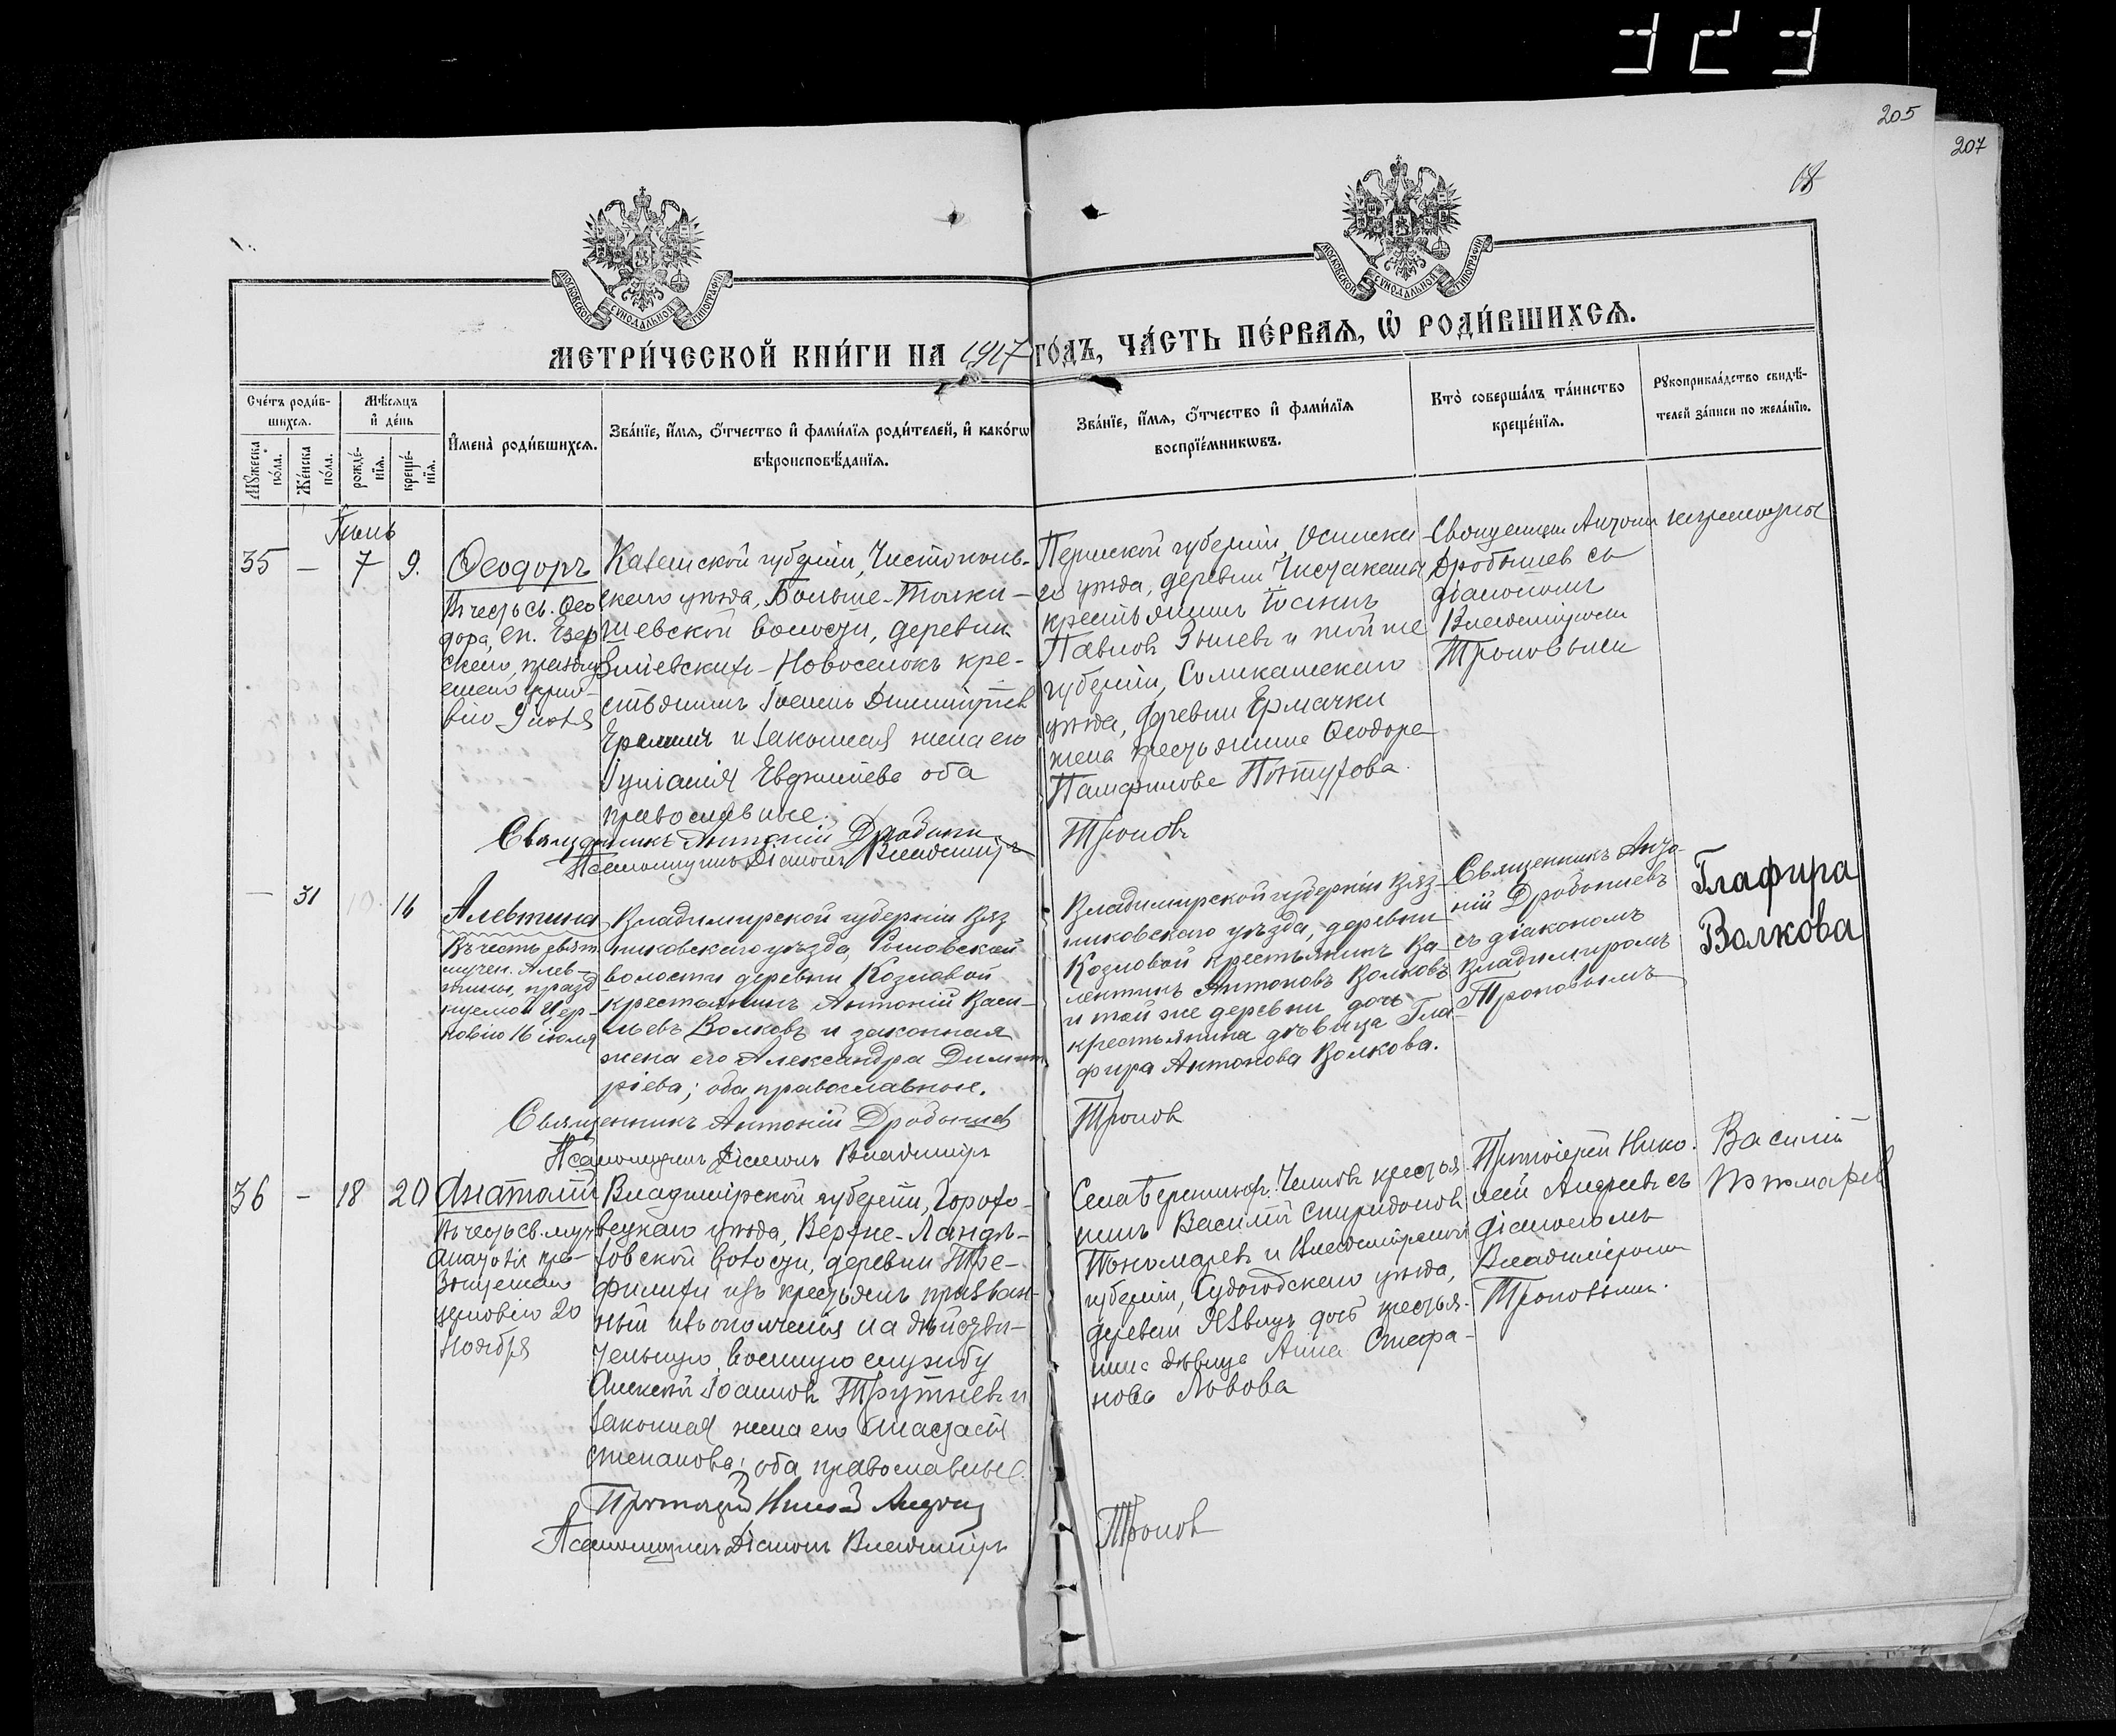 323
205
207
18
МОСКОВСКОЙ СУНОДАЛЬНОЙ ТИПОГРАФІИ
МОСКОВСКОЙ СУНОДАЛЬНОЙ ТИПОГРАФІИ
МЕТРИ́ЧЕСКОЙ КНИ́ГИ НА 1917 ГО́ДЪ, ЧА́СТЬ ПЕ́РВАѦ, Ѽ РОДИ́ВШИХСѦ.
Сче́тъ роди́в-
шихсѧ.
Мꙋ́жеска по́ла.
Же́нска по́ла.
Мѣ́сѧцъ
и҆ де́нь
рожде́-
нїѧ.
креще́-
нїѧ.
И҆мена̀ роди́вшихсѧ.
Зва́нїе, и҆́мѧ, ѻ҆́тчество и҆ фами́лїѧ роди́телей, и҆ како́гѡ
вѣроисповѣ́данїѧ.
Зва́нїе, и҆́мѧ, ѻ҆́тчество и҆ фами́лїѧ
воспрїе́мникѡвъ.
Кто̀ соверша́лъ та́инство
креще́нїѧ.
Рꙋкоприкла́дство свидѣ́-
телей за́писи по жела́нїю.
35
—
7
9.
Ѳеодоръ
Въ честь св. Ѳео
дора, еп. Едес
скаго, празднуе
9 іюля
Казанской губерніи, Чистополь-
скаго уѣзда, Больше-Толки-
шевской волости, деревни
Зміевскихъ-Новоселокъ кре-
стьянинъ Іоаннъ Димитріев
и законная жена его
Іуліанія оба
православные.
Священникъ Антоній Дробышев
Псаломщикъ Діаконъ Владиміръ
Троповъ
Пермской губерніи, Осинска
го уѣзда, деревни
крестьянинъ Іоаннъ
Павловъ и той же
губерніи, Соликамскаго
уѣзда, деревни Ермачки
жена крестьянина Ѳеодора
Памфилова
Священник Антоній
Дробышев съ
діакономъ
Владиміром
Троповым
неграмотны
—
31
16
Алевтина
Въ честь святт.
мучен. Алев-
тины, празд
нуемой Цер-
ковію 16 іюля
Владимирской губерніи Вяз
никовскаго уѣзда, Рыловской
волости деревни Козловой
крестьянинъ Антоній Васи-
льевъ Волковъ и законная
жена его Александра Димит
ріева; оба православные.
Священникъ Антоній Дробышев
Псаломщикъ Діаконъ Владиміръ
Троповъ
Владимирской губерніи Вяз-
никовскаго уѣзда, деревни
Козловой крестьянинъ Ва-
лентинъ Антоновъ Волковъ
и той же деревни дочь
крестьянина дѣвица Гла-
фира Антонова Волкова.
Священникъ Анто-
ній Дробышевъ
съ діакономъ
Владимиромъ
Троповымъ
Глафира
Волкова
36
—
18
20
Анатолій
Въ честь св. муч
Анатолія пра-
зднуемаго
церковію 20
Ноября
Владимірской губерніи, Горохо-
вецкаго уѣзда, Верхне-Ландѣ-
ховской волости, деревни Тре-
филихи изъ крестьянъ призван-
ный изъ ополченія на дѣйстви-
тельную военную службу
Алексѣй Іоанновъ Трутневъ и
законная жена его Анастасія
Степанова; оба православные.
Протоіерей Николай Андреев
Псаломщикъ Діаконъ Владиміръ
Троповъ
крестья
нинъ Василій Спиридонов
Пономаревъ и Владимірской
губерніи, Судогодскаго уѣзда,
деревни дочь крестья-
нина дѣвица Анна Стефа-
нова Львова
Протоіерей Нико-
лай Андреевъ съ
діакономъ
Владиміромъ
Троповымъ.
Василій
Пономарев